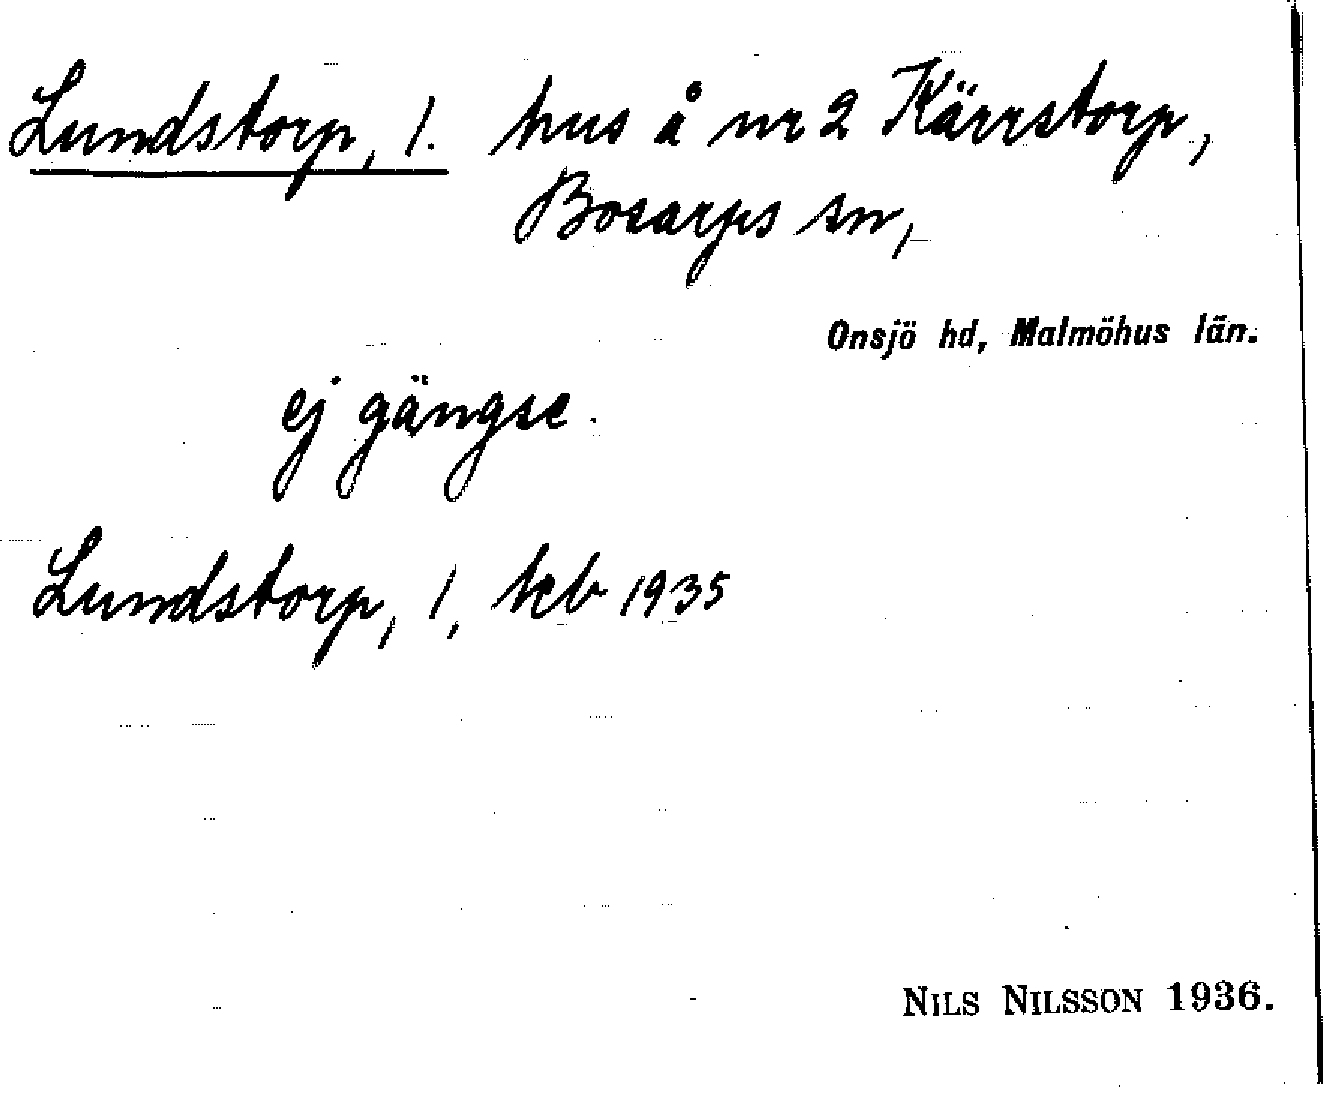 Lundstorp, 1. hus å nr 2 Kärrstorp,
Bosarps sn,
Onsjö hd, Malmöhus län.
ej gängse.
Lundstorp, 1, kcb 1935
NILS NILSSON 1936.